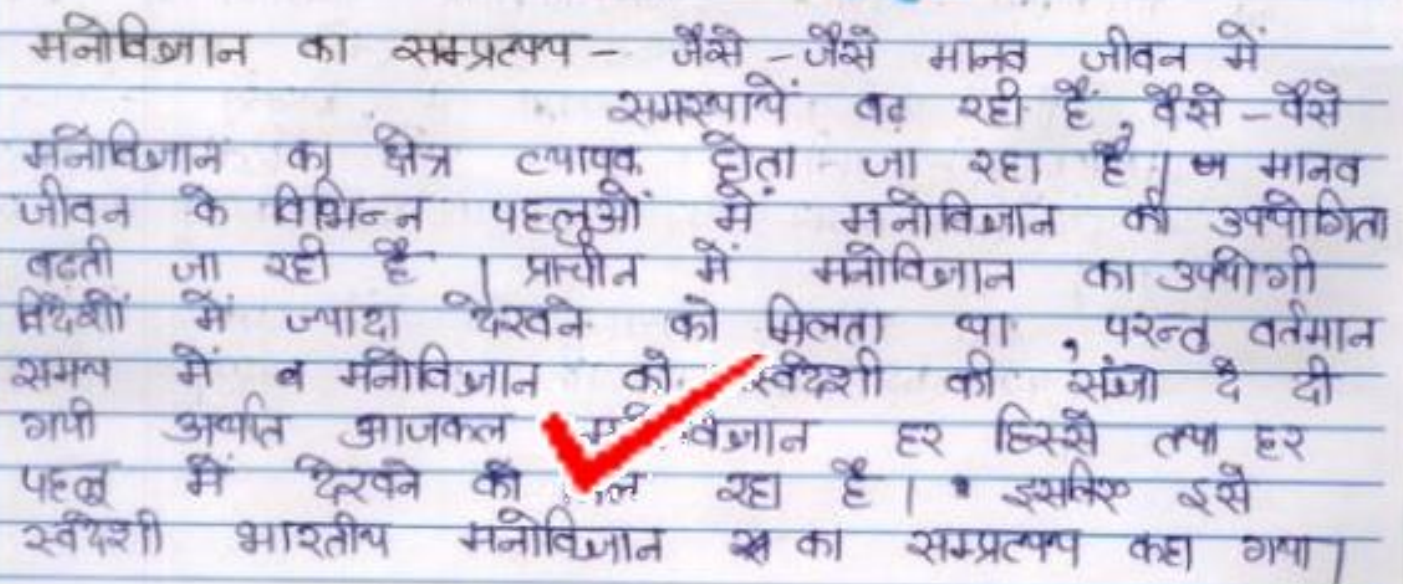 मनोविज्ञान का सम्प्रत्यय - जैसे - जैसे मानव जीवन में
समस्यायें बढ़ रही हैं, वैसे - वैसे
मनोविज्ञान का क्षेत्र व्यापक होता जा रहा है। मानव
जीवन के विभिन्न पहलुओं में मनोविज्ञान की उपयोगिता
बढती जा रही है । प्राचीन में मनोविज्ञान का उपयोगी
विदेशों में ज्यादा देखने को मिलता था , परन्तु वर्तमान
समय में व मनोविज्ञान को स्वदेशी की संज्ञा दे दी
गयी अर्थात आजकल हर हिस्से तथा हर
पहलू में देखने को रहा है । इसलिए इसे
स्वदेशी भारतीय मनोविज्ञान का सम्प्रत्यय कहा गया।